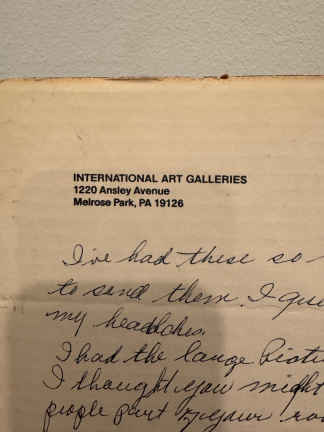 INTERNATIONAL ART GALLERIES
1220 Ansley Avenue
Melrose Park, PA 19126
I've had these so
to send them. I gue
my headaches.
I had the large
I thought you might
people part